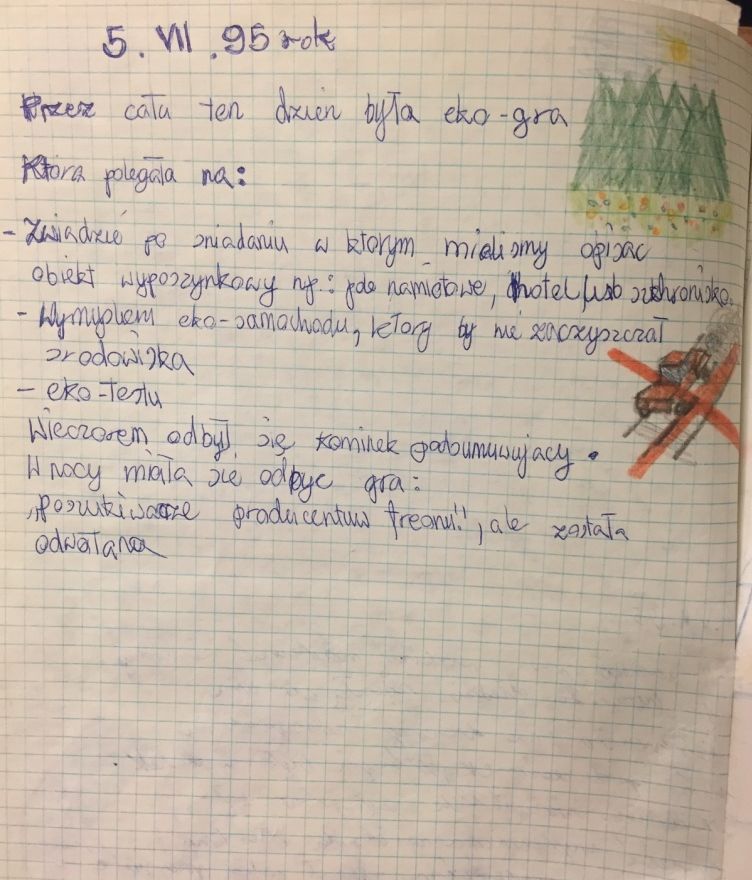 5. VII .95 rok
Przez cału ten dzień była eko-gra
Która polegała na:
- Zwiadzie po sniadaniu w ktorym mielismy opisac
obiekt wypoczynkowy np.: pole namiotowe, hotel lub schronisko.
- Wymyslem eko-samochodu, ktory by nie zaczyszczał
srodowiska
- eko-testu
Wieczorem odbył się kominek podsumuwujacy.
W nocy miała sie odbyc gra:
"Poszukiwacze producentuw freonu", ale została
odwołana